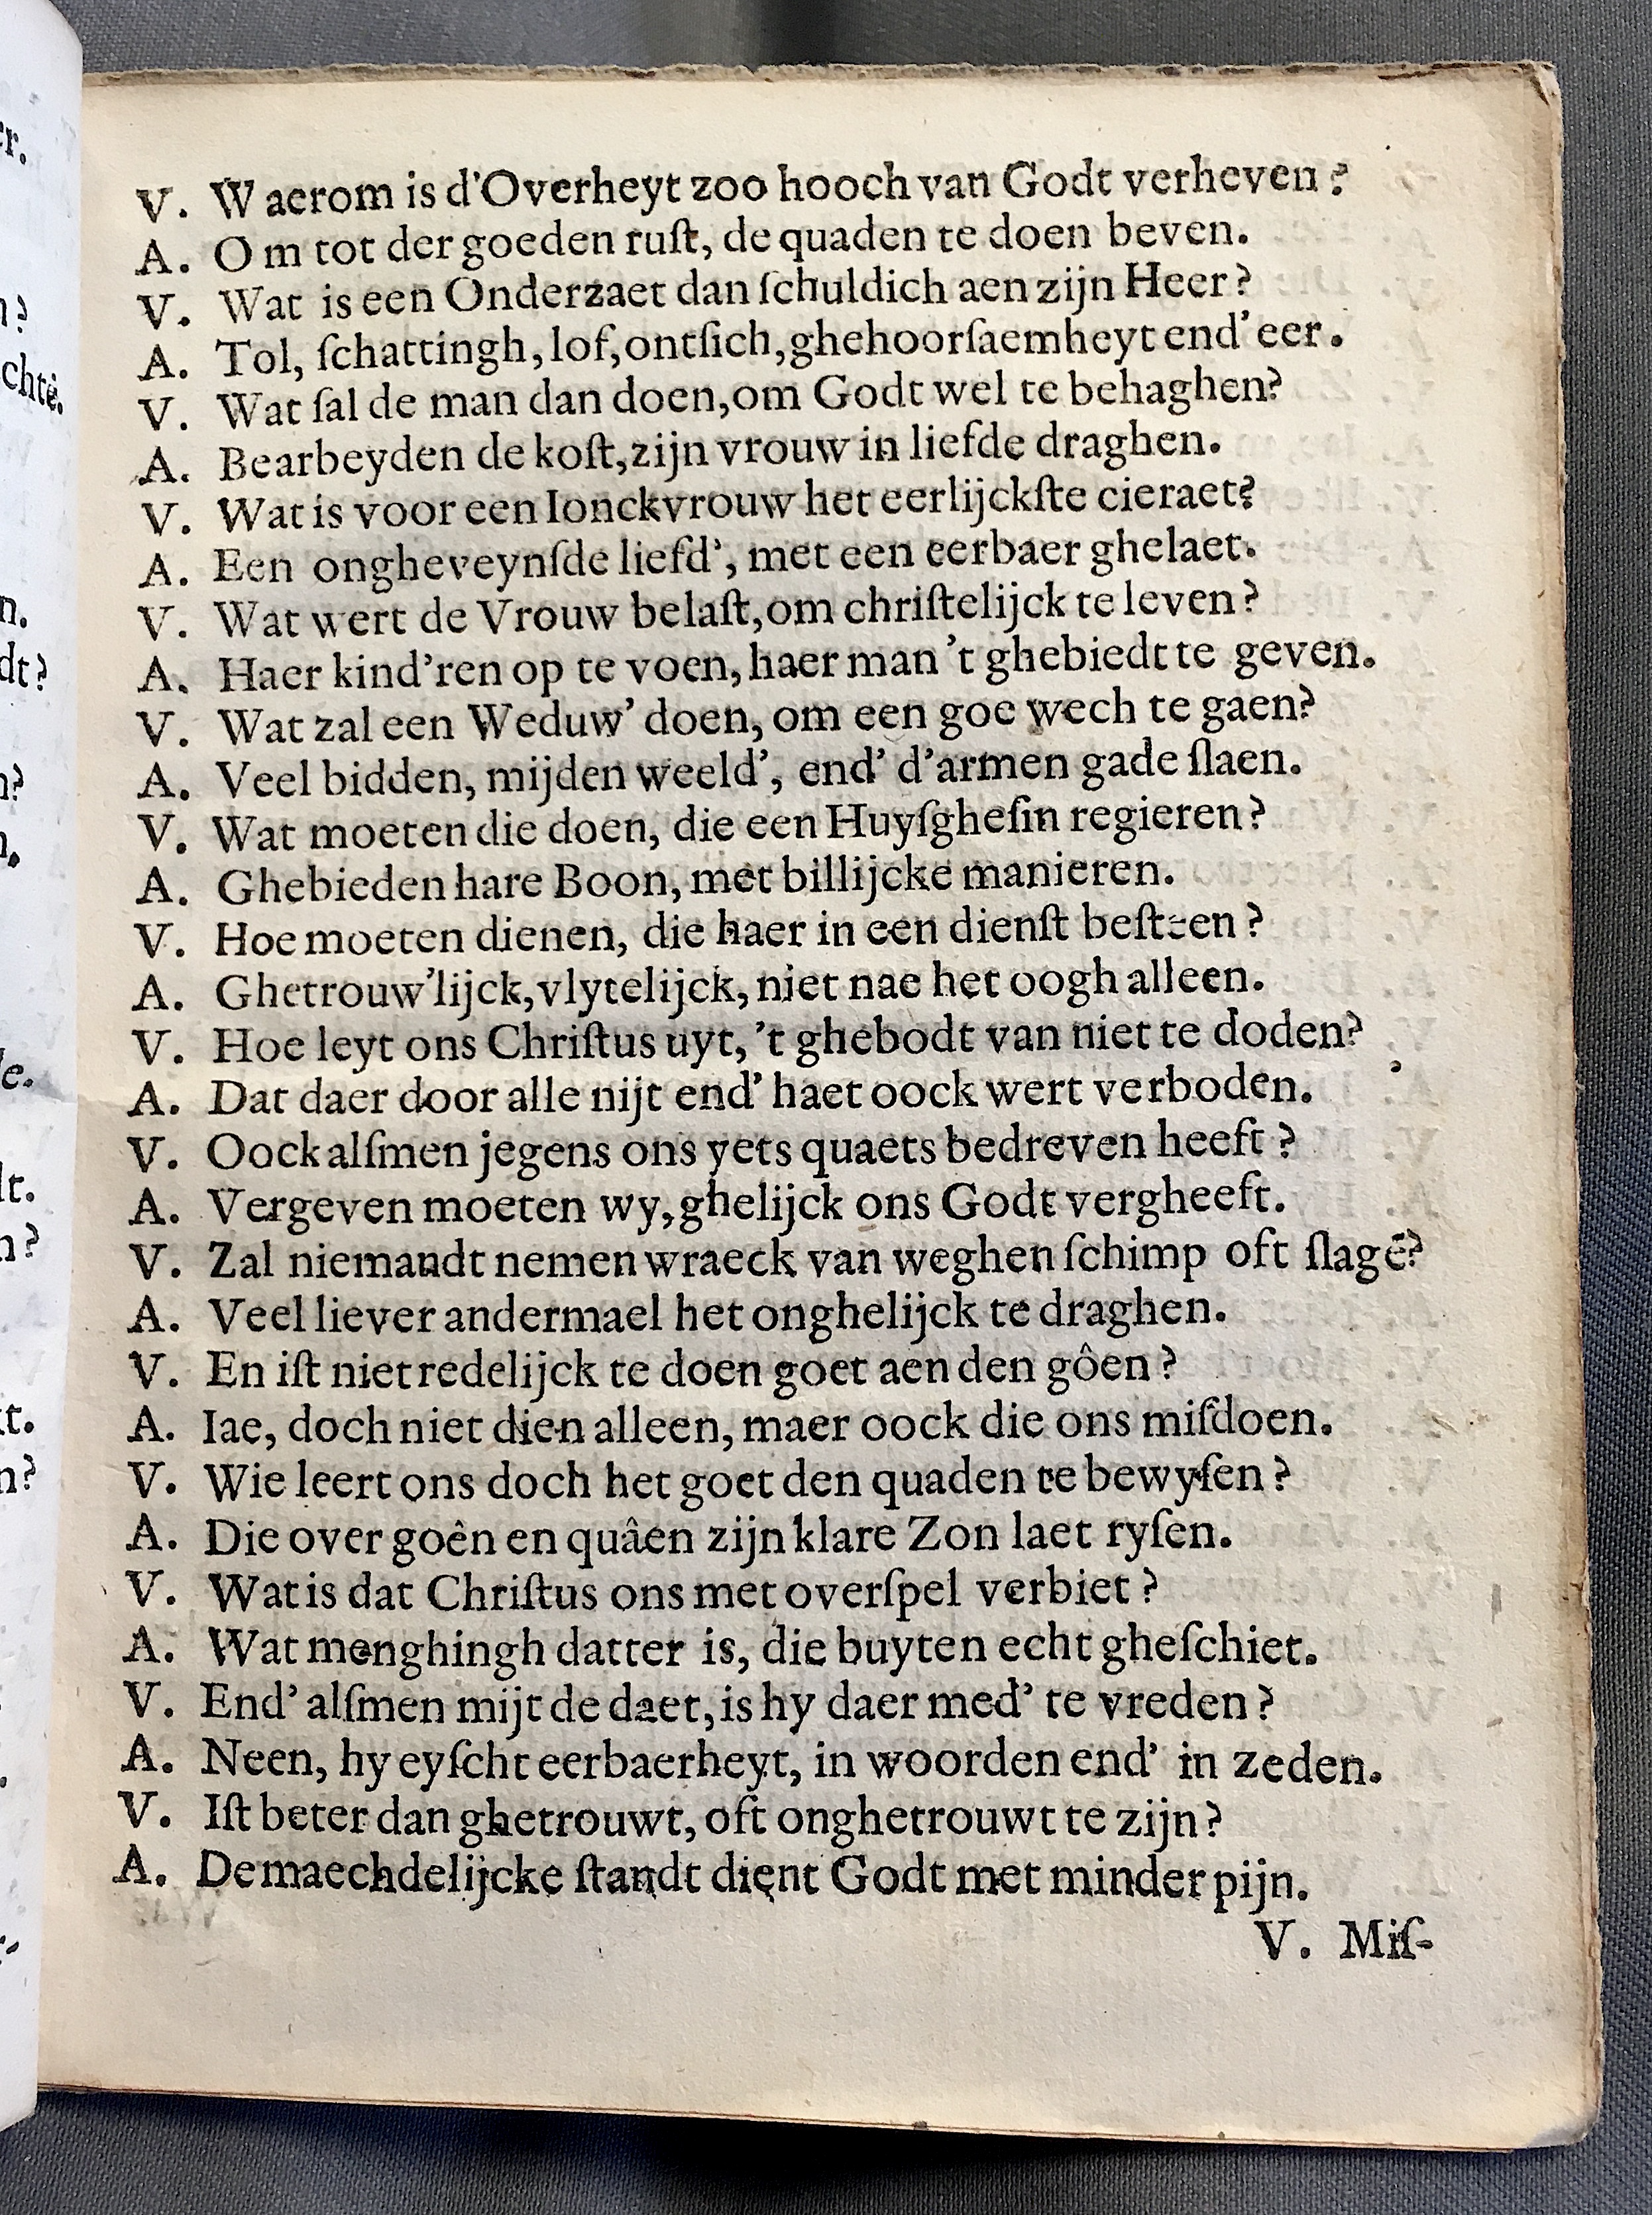 V. Waerom is d'Overheyt zoo hooch van Godt verheven?
A. Om tot der goeden ruſt, de quaden te doen beven.
V. Wat is een Onderzaet dan ſchuldich aen zijn Heer?
A. Tol, ſchattingh, lof, ontſich, ghehoorſaemheyt end' eer.
V. Wat ſal de man dan doen, om Godt wel te behaghen?
A. Bearbeyden de koſt, zijn vrouw in liefde draghen.
V. Wat is voor een Ionckvrouw het eerlijckſte cieraet?
A. Een ongheveynſde liefd', met een eerbaer ghelaet.
V. Wat wert de Vrouw belaſt, om chriſtelijck te leven?
A. Haer kind'ren op te voen, haer man 't ghebiedt te geven.
V. Wat zal een Weduw' doen, om een goe wech te gaen?
A. Veel bidden, mijden weeld', end' d'armen gade ſlaen.
V. Wat moeten die doen, die een Huyſgheſin regieren?
A. Ghebieden hare Boon, met billijcke manieren.
V. Hoe moeten dienen, die haer in een dienſt beſteen?
A. Ghetrouw'lijck, vlytelijck, niet nae het oogh alleen.
V. Hoe leyt ons Chriſtus uyt, 't ghebodt van niet te doden?
A. Dat daer door alle nijt end' haet oock wert verboden.
V. Oock alſmen jegens ons yets quaets bedreven heeft?
A. Vergeven moeten wy, ghelijck ons Godt vergheeft.
V. Zal niemandt nemen wraeck van weghen ſchimp oft ſlagē?
A. Veel liever andermael het onghelijck te draghen.
V. En iſt niet redelijck te doen goet aen den gôen?
A. Iae, doch niet dien alleen, maer oock die ons miſdoen.
V. Wie leert ons doch het goet den quaden te bewyſen?
A. Die over goên en quâen zijn klare Zon laet ryſen.
V. Wat is dat Chriſtus ons met overſpel verbiet?
A. Wat menghingh datter is, die buyten echt gheſchiet.
V. End' alſmen mijt de daet, is hy daer med' te vreden?
A. Neen, hy eyſcht eerbaerheyt, in woorden end' in zeden.
V. Iſt beter dan ghetrouwt, oft onghetrouwt te zijn?
A. De maechdelijcke ſtandt dient Godt met minder pijn.
V. Miſ-